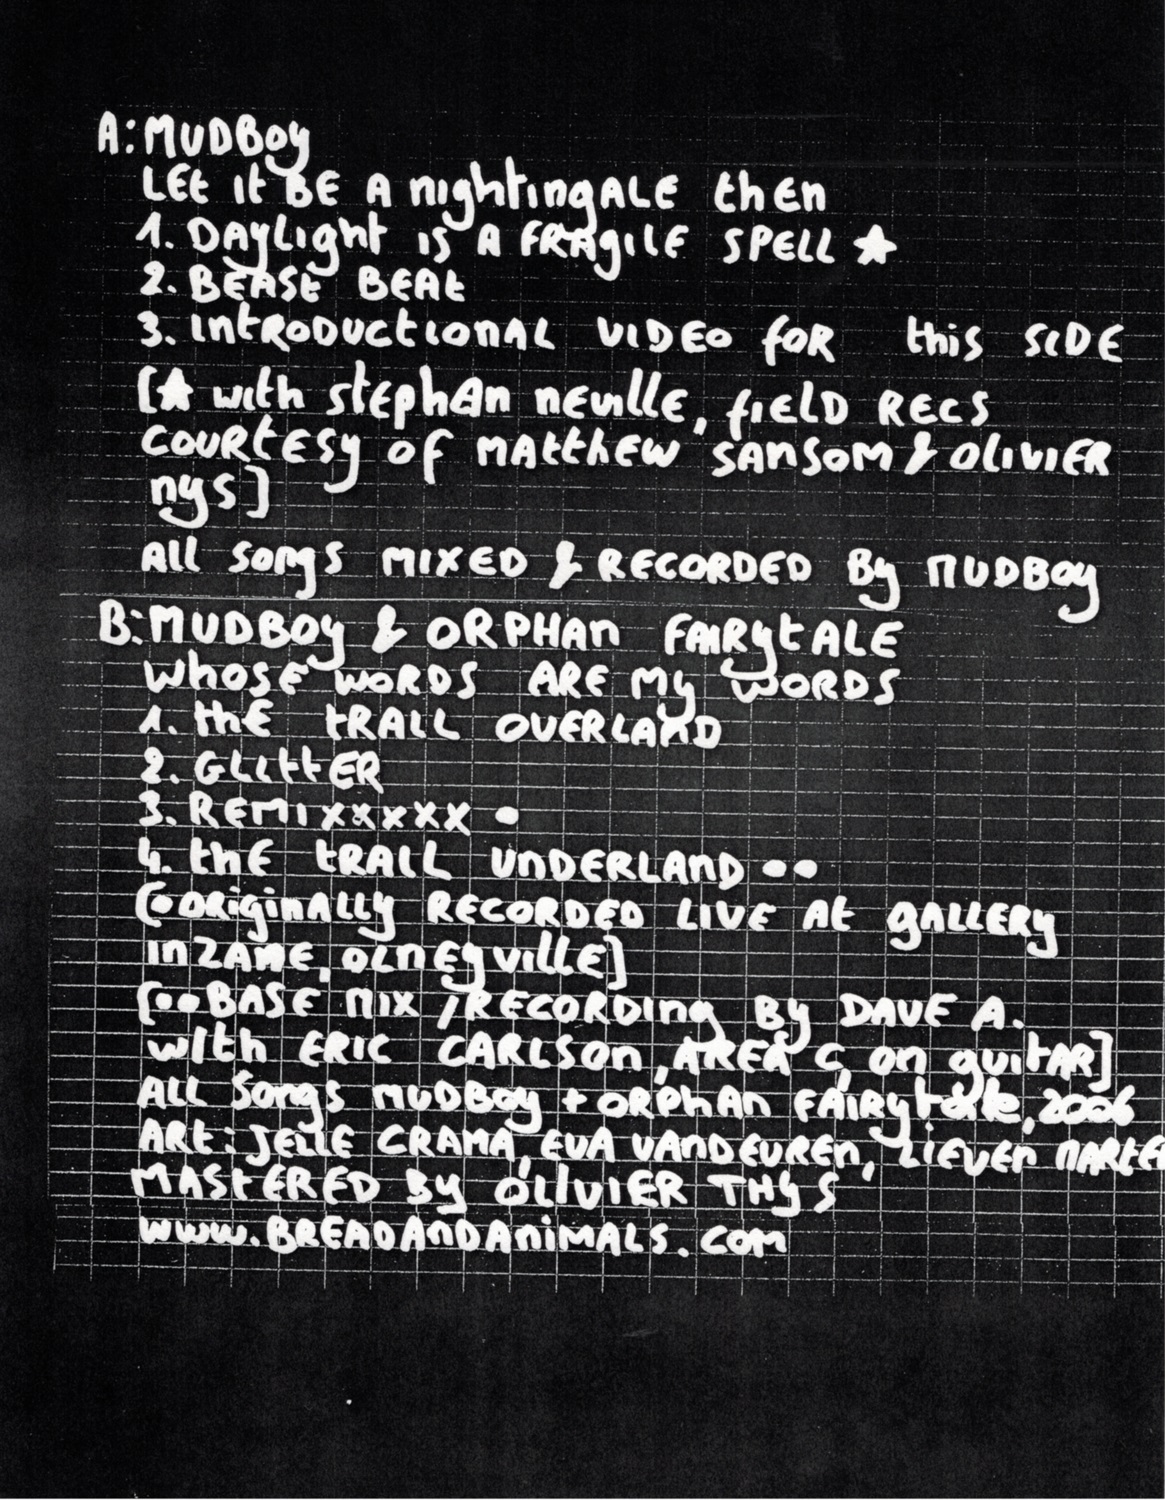 A: MUDBOY
LET IT BE A nightingALE then
1. DAYLight IS A FRAgiLE SPELL ★
2. BEAST BEAT
3. INTRODUCTIONAL VIDEO foR this SIDE
[★ with stEphAn nEville, fiELD RECS
COURTESY of MATThEW SANSOM & OLIVIER
nys]
ALL SongS MIXED & RECORDED By MUDBOY
B: MUDBOY & ORPHAn FAIRYtALE
WhOSE WORDS ARE My WORDS
1. thE tRALL OVERLAND
2. GLIttER
3. REMIXXXXX •
4. thE tRALL UnDERLAnD ••
[•ORiginALLY RECORDED LIVE At gALLERY
INZANE, OLnEyvillE]
[••BASE MIX /RECORDIng By DAVE A.
with ERIC CARLSOn, AREA C, on guitAR]
ALL SongS MUDBoy + ORPhAn FAIRytale, 2006
ARt: JELLE CRAMA, EVA VANDEUREn, LiEVEn MARtEn
MAStERED By OLIVIER THYS
www.BREADAnDAniMALS.com